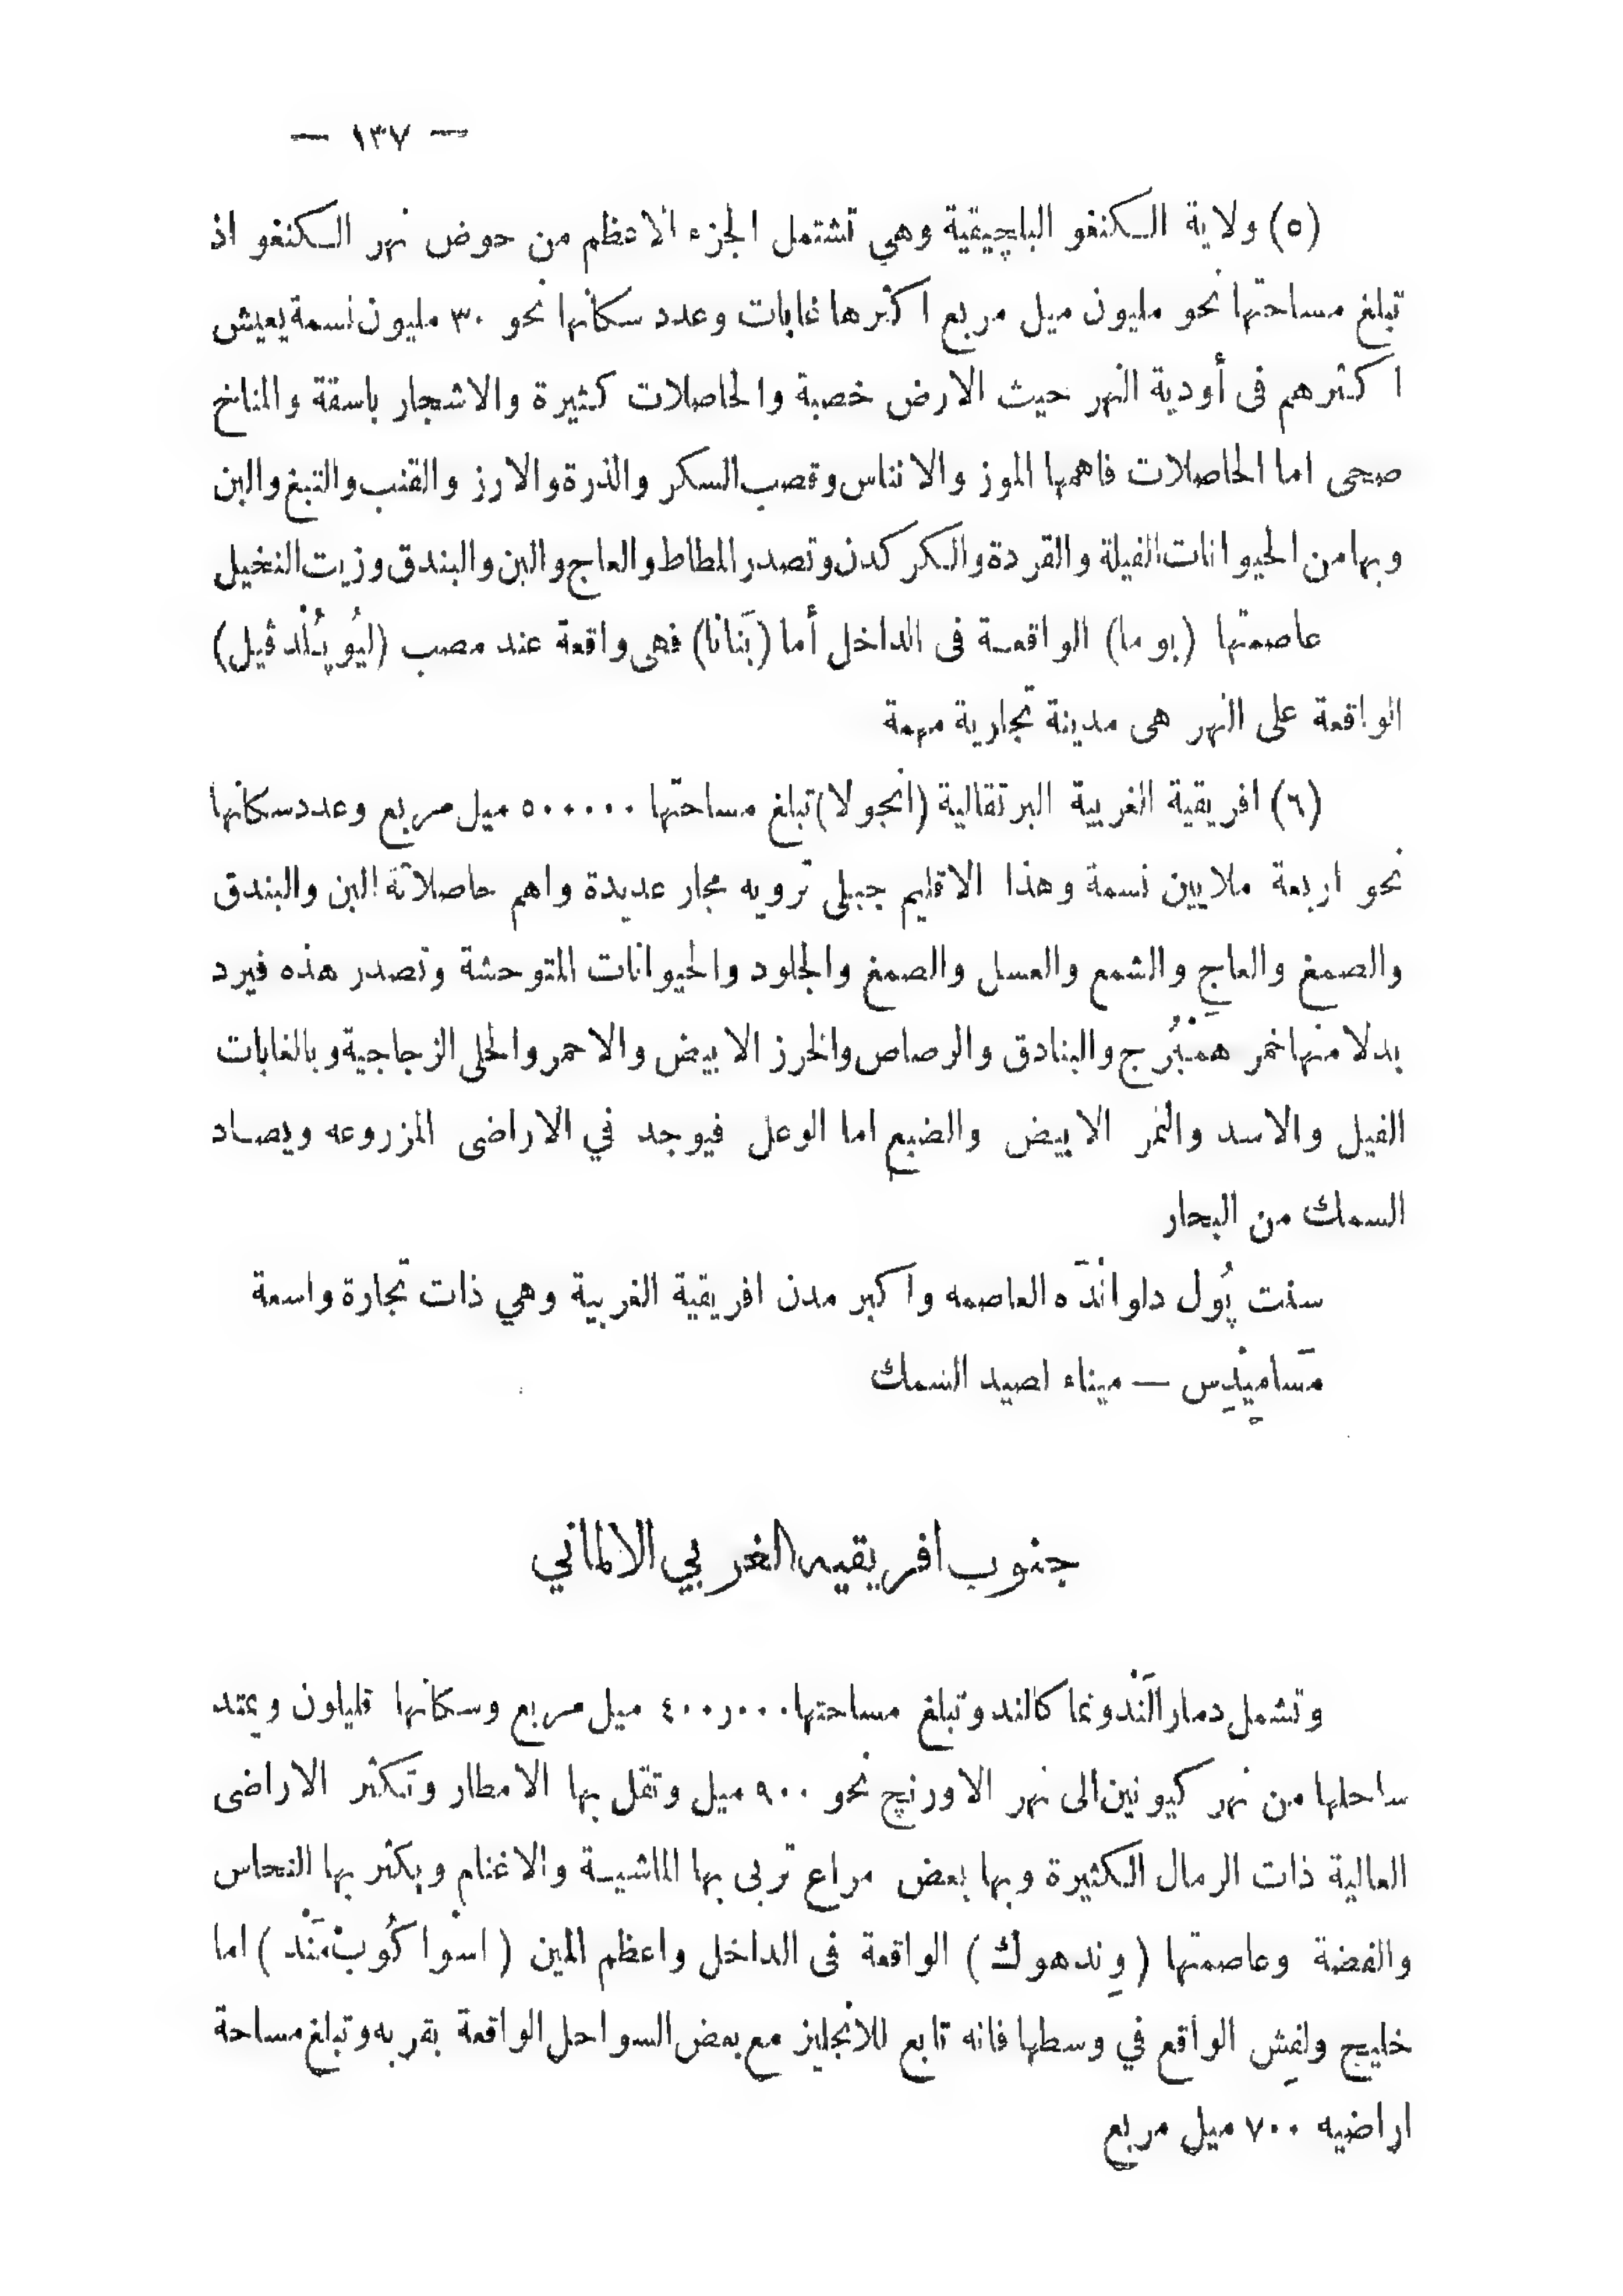 — ١٣٧ —
(٥) ولاية الكنغو البلچيقية وهي تشتمل الجزء الاعظم من حوض نهر الكنغو اذ
تبلغ مساحتها نحو مليون ميل مربع اكثرها غابات وعدد سكانها نحو ٣٠ مليون نسمة يعيش
اكثرهم فى أودية النهر حيث الارض خصبة والحاصلات كثيرة والاشجار باسقة والمناخ
صحى اما الحاصلات فاهمها الموز والاناناس وقصب السكر والذرة والارز والقنب والتبغ والبن
وبها من الحيوانات الفيلة والقردة والكركدن وتصدر المطاط والعاج والبن والبندق وزيت النخيل
عاصمتها (بوما) الواقعة فى الداخل أما (بَنانا) فهى واقعة عند مصب (ليُوپُلْدڤيل)
الواقعة على النهر هى مدينة تجارية مهمة
(٦) افريقية الغربية البرتقالية (انجولا) تبلغ مساحتها ٥٠٠٠٠٠ ميل مربع وعدد سكانها
نحو اربعة ملايين نسمة وهذا الاقليم جبلى ترويه مجار عديدة واهم حاصلاته البن والبندق
والصمغ والعاج والشمع والعسل والصمغ والجلود والحيوانات المتوحشة وتصدر هذه فيرد
بدلا منها خمر همَبْرُج والبنادق والرصاص والخرز الابيض والاحمر والحلى الزجاجية وبالغابات
الفيل والاسد والنمر الابيض والضبع اما الوعل فيوجد في الاراضى المزروعه ويصاد
السمك من البحار
سنت پُول دلواندَه العاصمه واكبر مدن افريقية الغربية وهي ذات تجارة واسعة
مَسامِيْدِس — ميناء لصيد السمك
جنوب افريقيه الغربي الالماني
وتشمل دمارالَنْد ونماكالند وتبلغ مساحتها ٤٠٠ر٠٠٠ ميل مربع وسكانها قليلون ويمتد
ساحلها من نهر كيونين الى نهر الاورنچ نحو ٩٠٠ ميل وتقل بها الامطار وتكثر الاراضى
العالية ذات الرمال الكثيرة وبها بعض مراع تربى بها الماشية والاغنام ويكثر بها النحاس
والفضة وعاصمتها (وِندهوك) الواقعة فى الداخل واعظم المين (اسْواكُوبْمَنْد) اما
خليج ولفِش الواقع في وسطها فانه تابع للانجليز مع بعض السواحل الواقعة بقربه وتبلغ مساحة
اراضيه ٧٠٠ ميل مربع